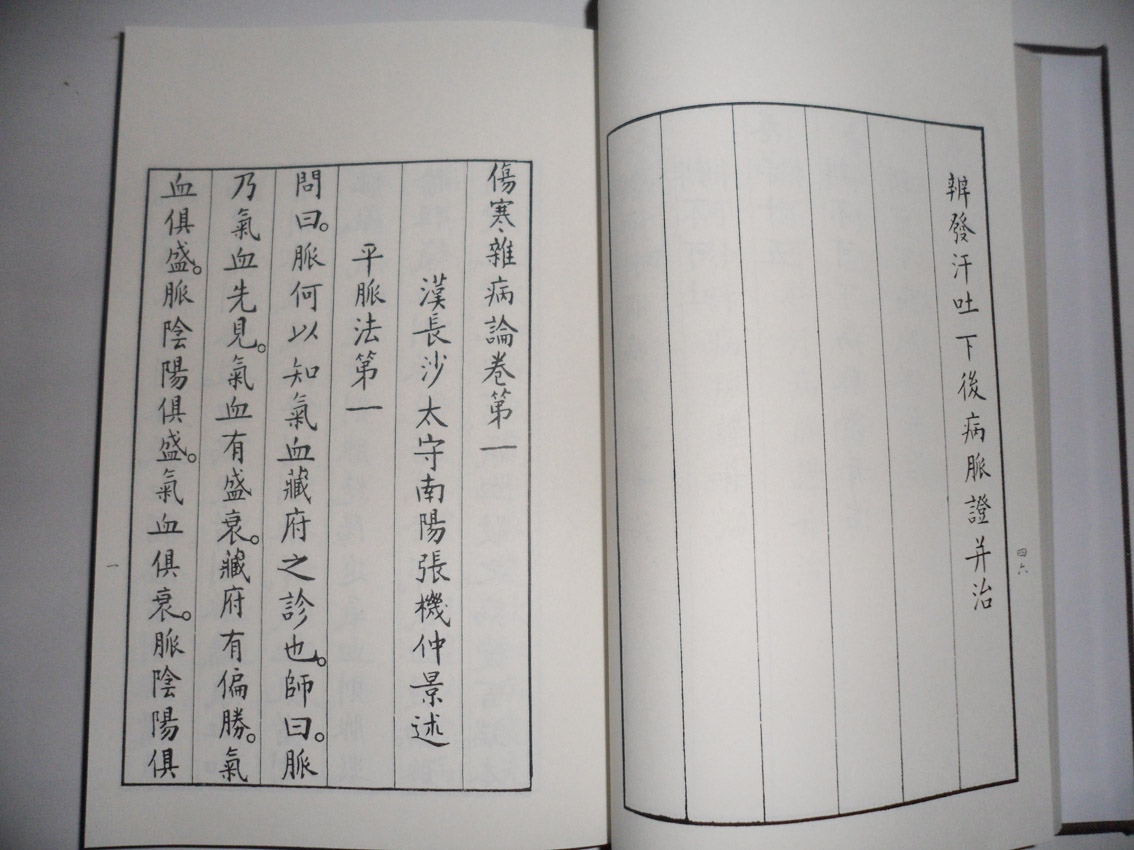 辨發汗吐下後病脈證并治
四六
傷寒雜病論卷第一
漢長沙太守南陽張機仲景述
平脈法第一
問曰。脈何以知氣血藏府之診也。師曰。脈
乃氣血先見。氣血有盛衰。藏府有偏勝。氣
血俱盛。脈陰陽俱盛。氣血俱衰。脈陰陽俱
一